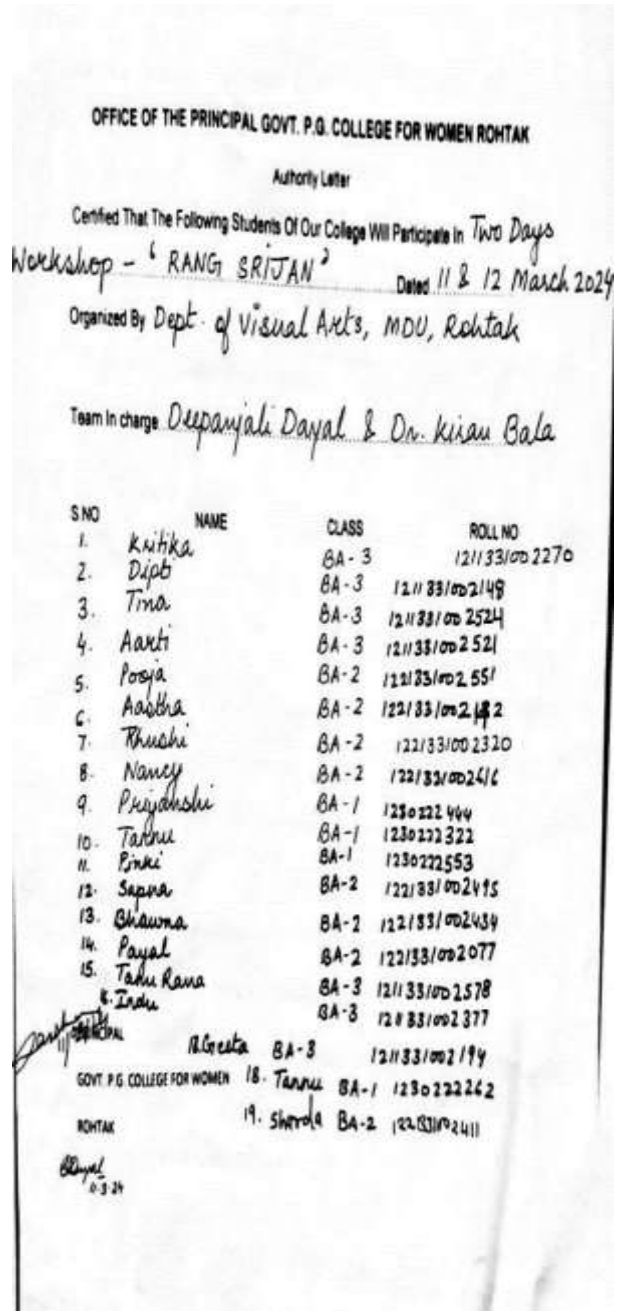 OFFICE OF THE PRINCIPAL GOVT. P.G. COLLEGE FOR WOMEN ROHTAK
Authority Letter
Certified That The Following Students Of Our College Will Participate In Two Days
Workshop - ' RANG SRIJAN ' Dated 11 & 12 March 2024
Organized By Dept. of Visual Arts, MDU, Rohtak
Team In charge Deepanjali Dayal & Dr. Kiran Bala
S.NO NAME CLASS ROLL NO
1. Kritika BA-3 121133/002270
2. Dipti BA-3 121133/002148
3. Tina BA-3 121133/002524
4. Aarti BA-3 121133/002521
5. Pooja BA-2 122133/002551
6. Aastha BA-2
7. Khushi BA-2 122133/002320
8. Nancy BA-2
9. Priyanshi BA-1 1230222444
10. Tannu BA-1 1230222322
11. Pinki BA-1 1230222553
12. Sapna BA-2 122133/002495
13. Bhawna BA-2 122133/002434
14. Payal BA-2 122133/002077
15. Tanu Rana BA-3 121133/002578
Indu BA-3
PRINCIPAL
Geeta BA-3 121133/002194
GOVT P.G. COLLEGE FOR WOMEN 18. Tannu BA-1 1230222262
ROHTAK 19. BA-2
11-3-24